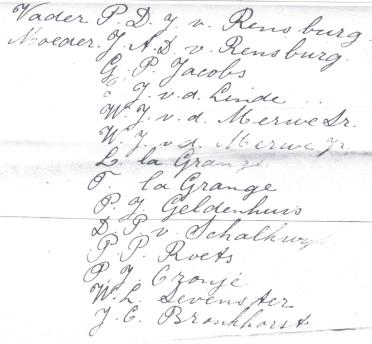 Vader P. D. J. v. Rensburg.
Moeder. J. A. D. v. Rensburg.
G. P. Jacobs
J. v. d. Linde
W. J. v. d. Merwe Sr.
W. J. v. d. Merwe Jr.
L. la Grange
F. la Grange
P. J. Geldenhuis
D. P. v. Schalkwyk
P. P. Roets
P. J. Cronjé
W. L. Sevenster
J. C. Bronkhorst